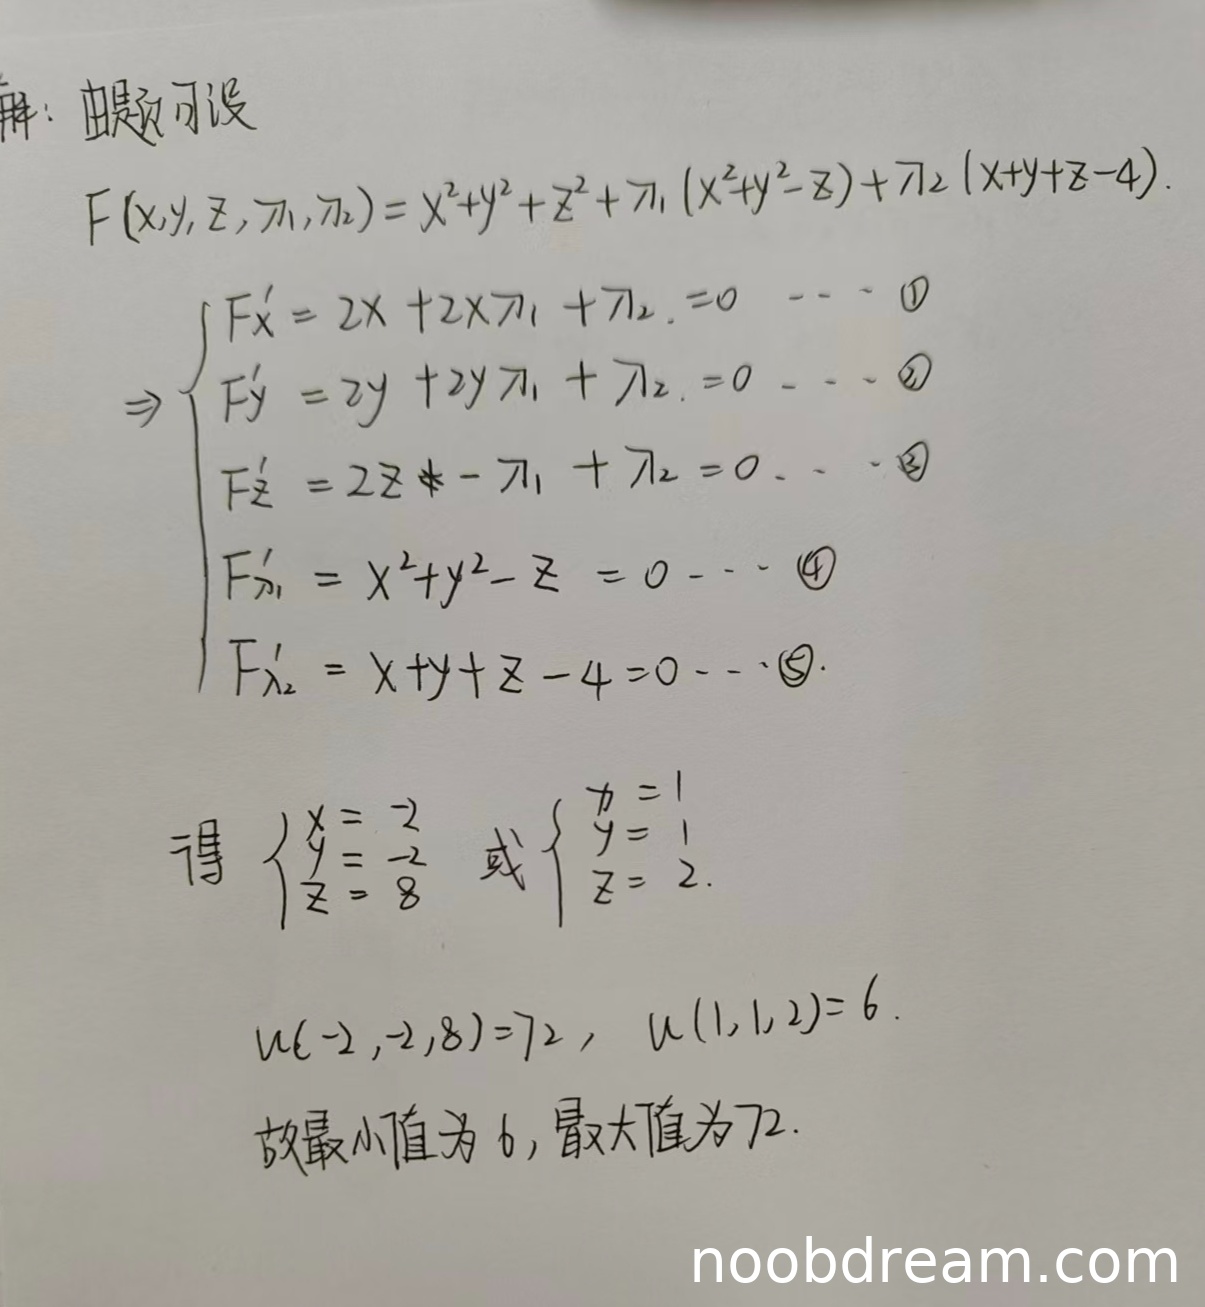 解: 由题可设
F(x,y,z,λ1,λ2)=x²+y²+z²+λ1(x²+y²-z)+λ2(x+y+z-4).
F'x = 2x+2xλ1+λ2.=0 --- ①
⇒ F'y = 2y+2yλ1+λ2.=0 --- ②
F'z = 2z - λ1+λ2=0--- ③
F'λ1 = x²+y²-z = 0--- ④
F'λ2 = x+y+z-4=0--- ⑤.
得 { x = -2 或 { x = 1
y = -2 y = 1
z = 8 z = 2.
u(-2,-2,8)=72, u(1,1,2)=6.
故最小值为6,最大值为72.
noobdream.com